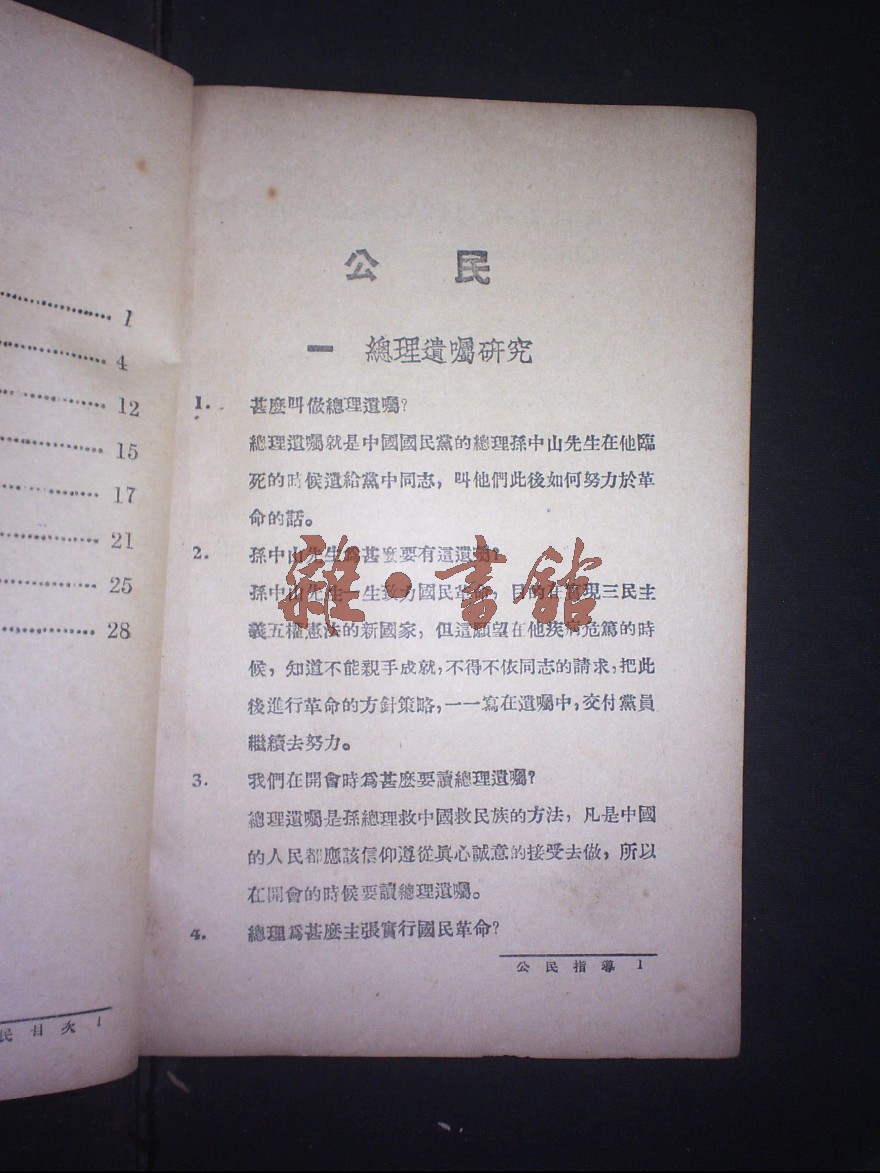 1
4
12
15
17
21
25
28
民目次 1
公 民
一 總理遺囑研究
1. 甚麼叫做總理遺囑?
總理遺囑就是中國國民黨的總理孫中山先生在他臨
死的時候遺給黨中同志，叫他們此後如何努力於革
命的話。
2. 孫中山先生爲甚麼要有這遺囑?
孫中山先生一生致力國民革命，目的在實現三民主
義五權憲法的新國家，但這願望在他疾病危篤的時
候，知道不能親手成就，不得不依同志的請求，把此
後進行革命的方針策略，一一寫在遺囑中，交付黨員
繼續去努力。
3. 我們在開會時爲甚麼要讀總理遺囑?
總理遺囑是孫總理救中國救民族的方法，凡是中國
的人民都應該信仰遵從眞心誠意的接受去做，所以
在開會的時候要讀總理遺囑。
4. 總理爲甚麼主張實行國民革命?
公民指導 1
雜·書館